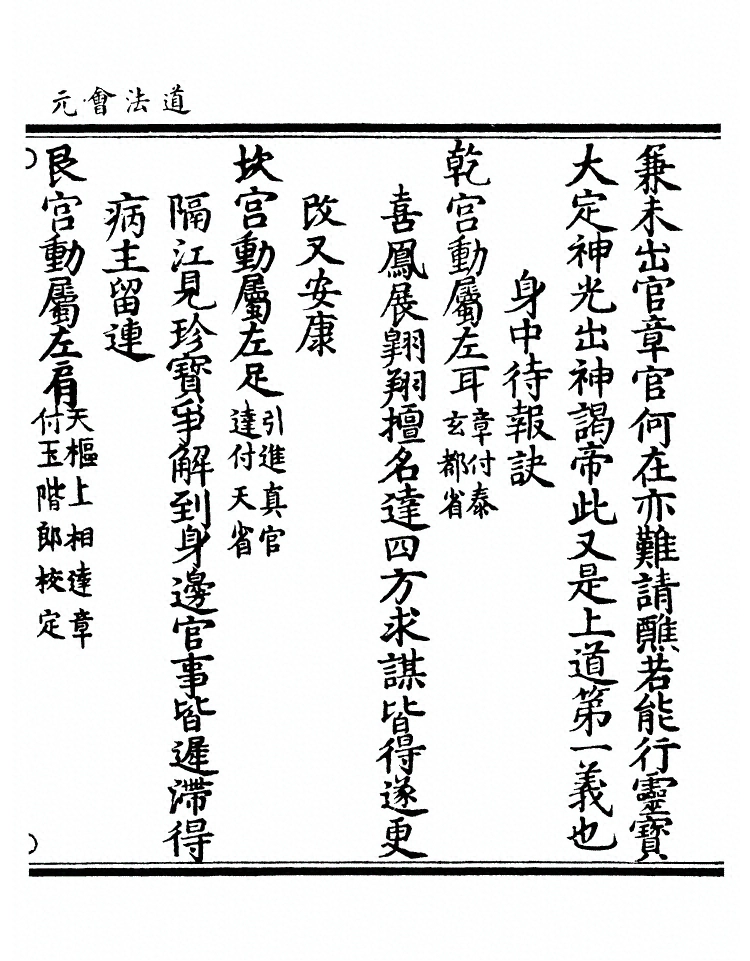 道法會元
兼未出官章官何在亦難請醮若能行靈寶
大定神光出神謁帝此又是上道第一義也
身中待報訣
乾宫動屬左耳
章付泰
玄都省
喜鳳展翺翔擅名達四方求謀皆得遂更
改又安康
坎宫動屬左足
引進真官
達付天省
隔江見珍寶爭解到身邊官事皆遲滯得
病主留連
艮宫動屬左肩
天樞上相達章
付玉階郎校定